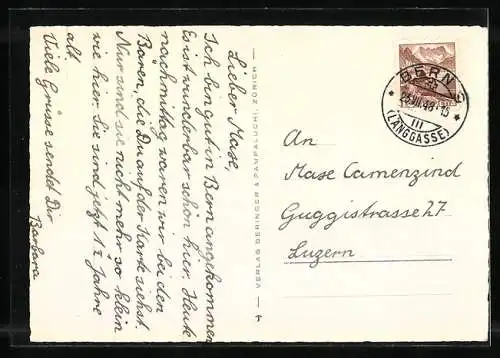 Lieber Mase.
Ich bin gut in Bern angekommen
Es ist wunderbar schön hier. Heute
nachmittag waren wir bei den
Bären, die Du auf der Karte siehst.
Nur sind sie nicht mehr so klein
wie hier. Sie sind jetzt 1½ Jahre
alt.
Viele Grüsse sendet Dir
Barbara
VERLAG BERINGER & PAMPALUCHI, ZÜRICH
BERN 9
VII.48.-15
III
(LÄNGGASSE)
An
Mase Camenzind
Guggistrasse 27
Luzern